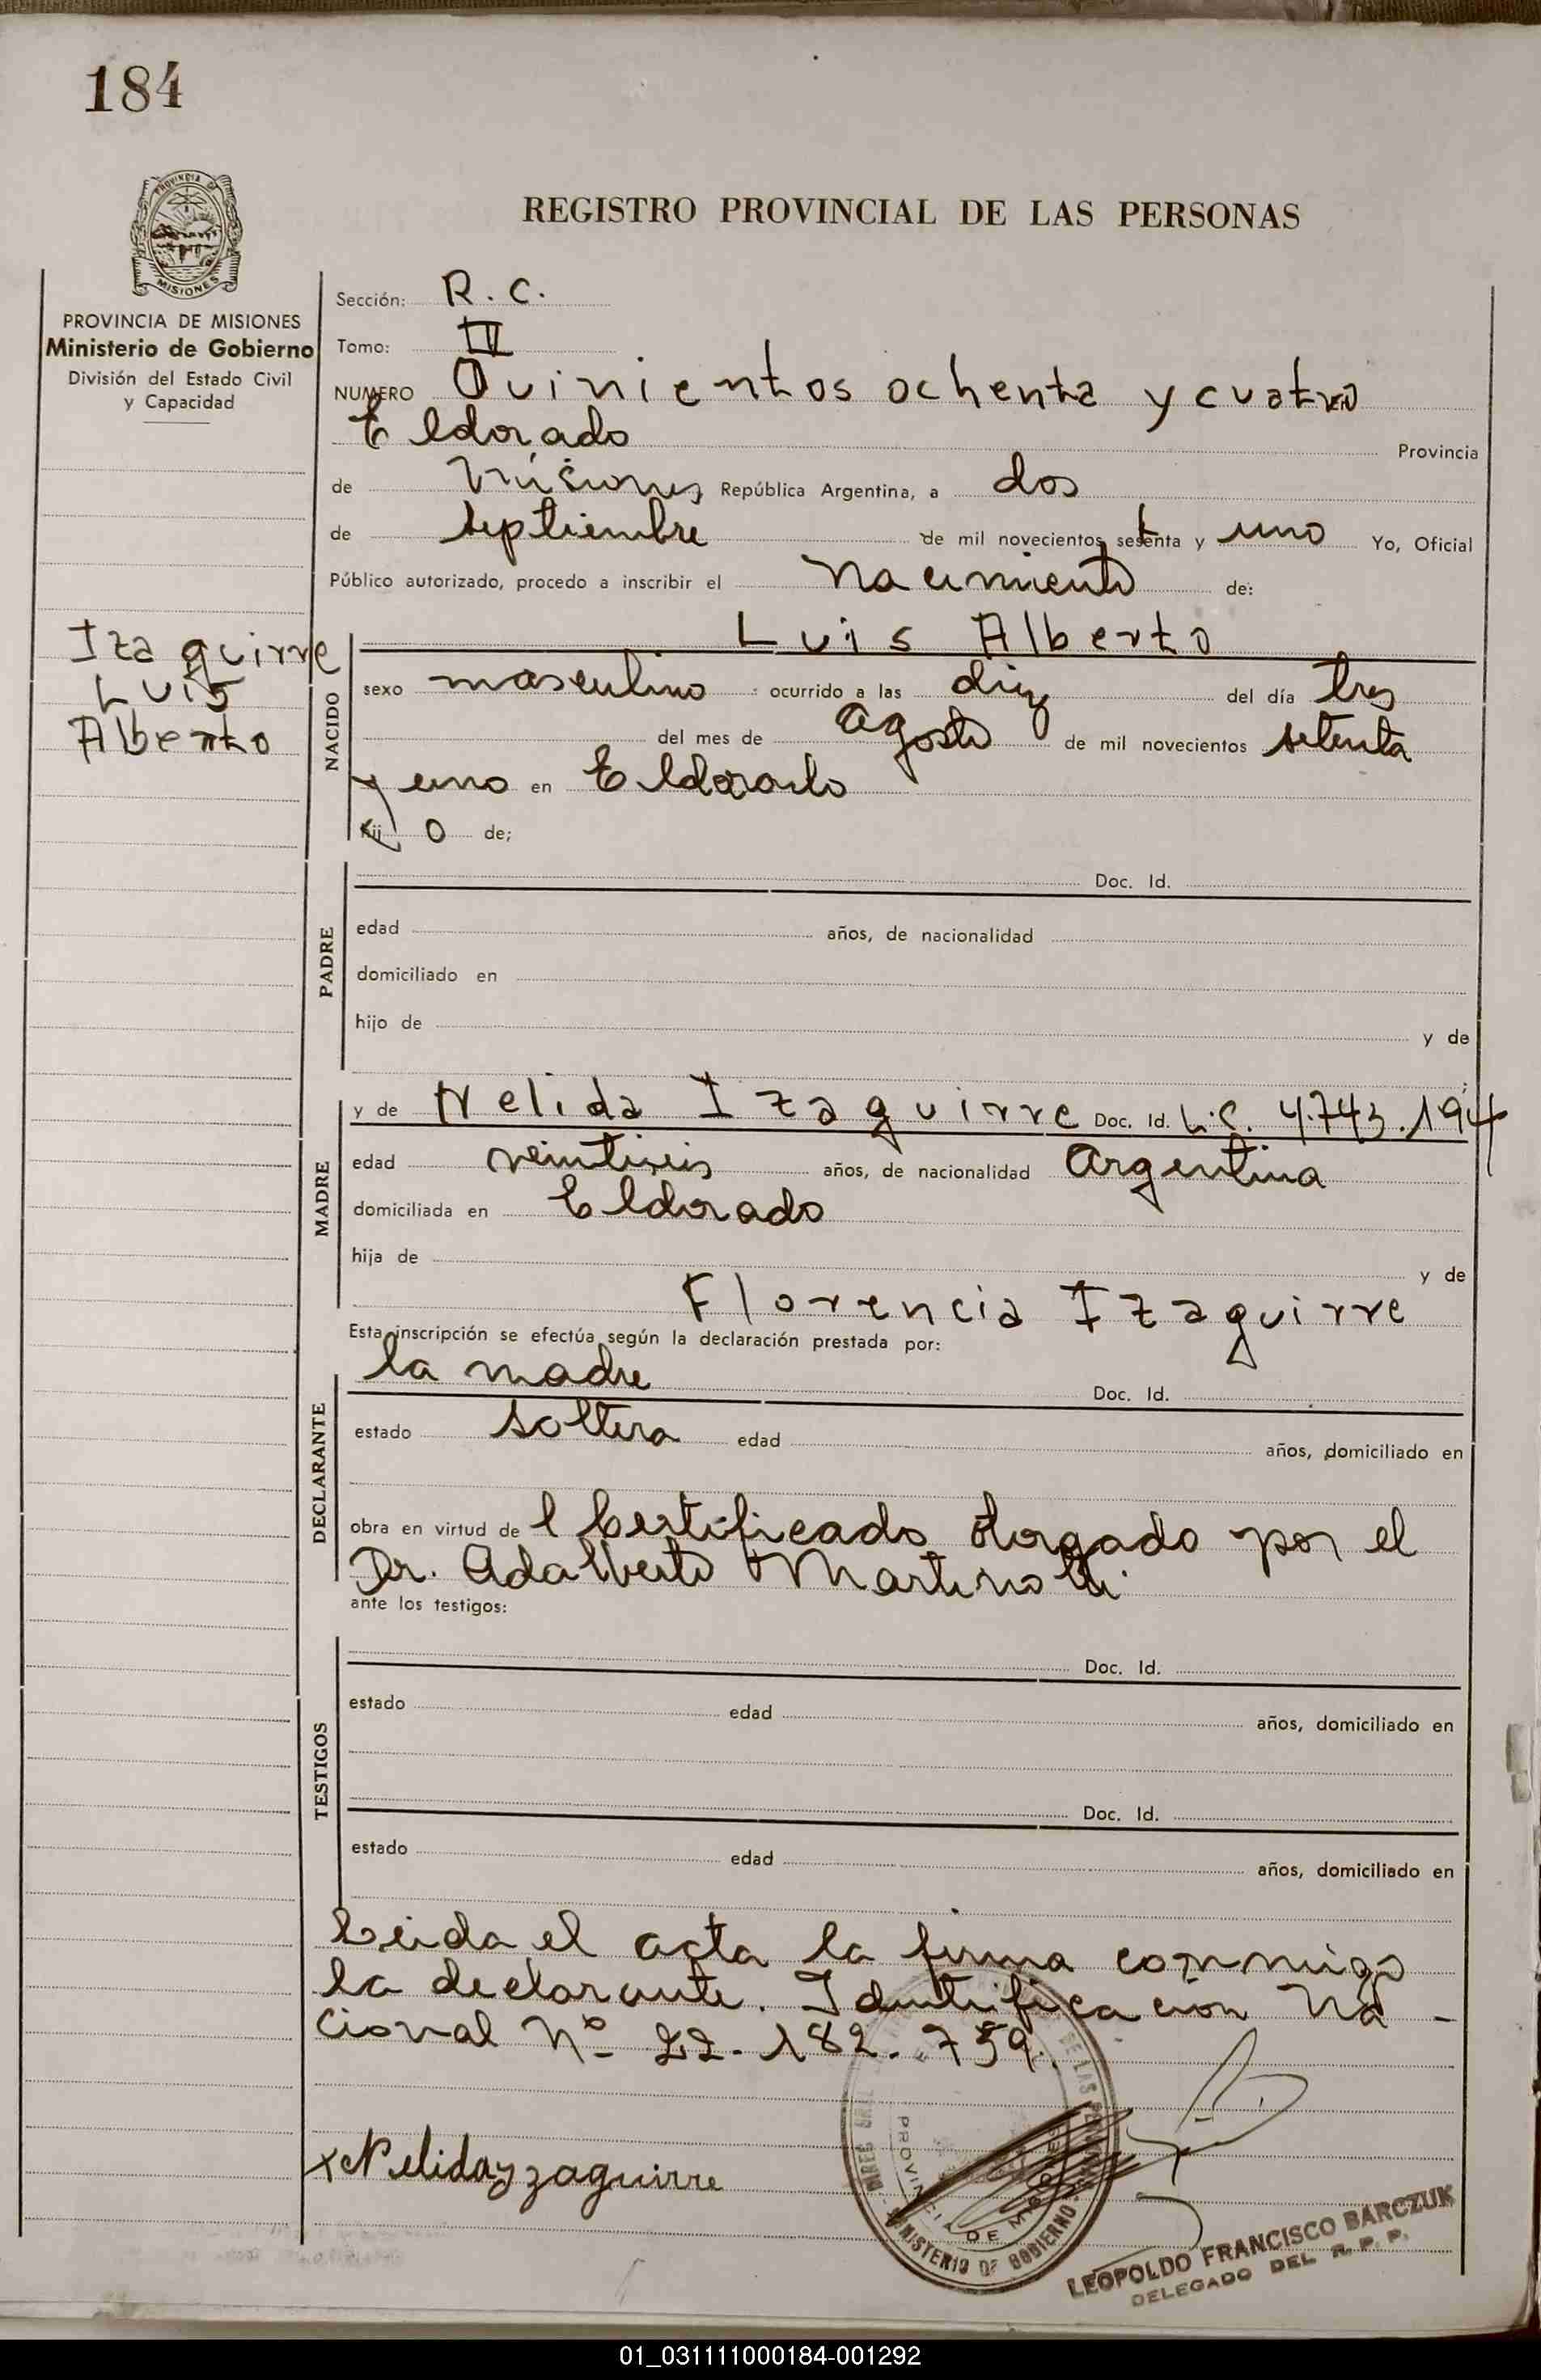 184
PROVINCIA DE MISIONES
MISIONES
PROVINCIA DE MISIONES
Ministerio de Gobierno
División del Estado Civil
y Capacidad
REGISTRO PROVINCIAL DE LAS PERSONAS
Sección: R. C.
Tomo: IV
NUMERO Quinientos ochenta y cuatro
Eldorado Provincia
de Misiones República Argentina, a dos
de septiembre de mil novecientos setenta y uno Yo, Oficial
Público autorizado, procedo a inscribir el Nacimiento de:
Izaguirre
Luis
Alberto
NACIDO
Luis Alberto
sexo masculino ocurrido a las diez del día tres
del mes de Agosto de mil novecientos setenta
y uno en Eldorado
hijo de;
PADRE
Doc. Id.
edad años, de nacionalidad
domiciliado en
hijo de y de
MADRE
y de Nelida Izaguirre Doc. Id. L.C. 4.743.194
edad veintiseis años, de nacionalidad Argentina
domiciliada en Eldorado
hija de y de
Florencia Izaguirre
Esta inscripción se efectúa según la declaración prestada por:
DECLARANTE
la madre Doc. Id.
estado soltera edad años, domiciliado en
obra en virtud de l Certificado otorgado por el
Dr. Adalberto Martinotti
ante los testigos:
TESTIGOS
Doc. Id.
estado edad años, domiciliado en
Doc. Id.
estado edad años, domiciliado en
Leida el acta la firma conmigo
la declarante. Identificacion Na-
cional Nº 22.182.759.
x Nelida Yzaguirre
PROVINCIA DE MISIONES
MINISTERIO DE GOBIERNO
LEOPOLDO FRANCISCO BARCZUK
DELEGADO DEL R. P. P.
01_031111000184-001292